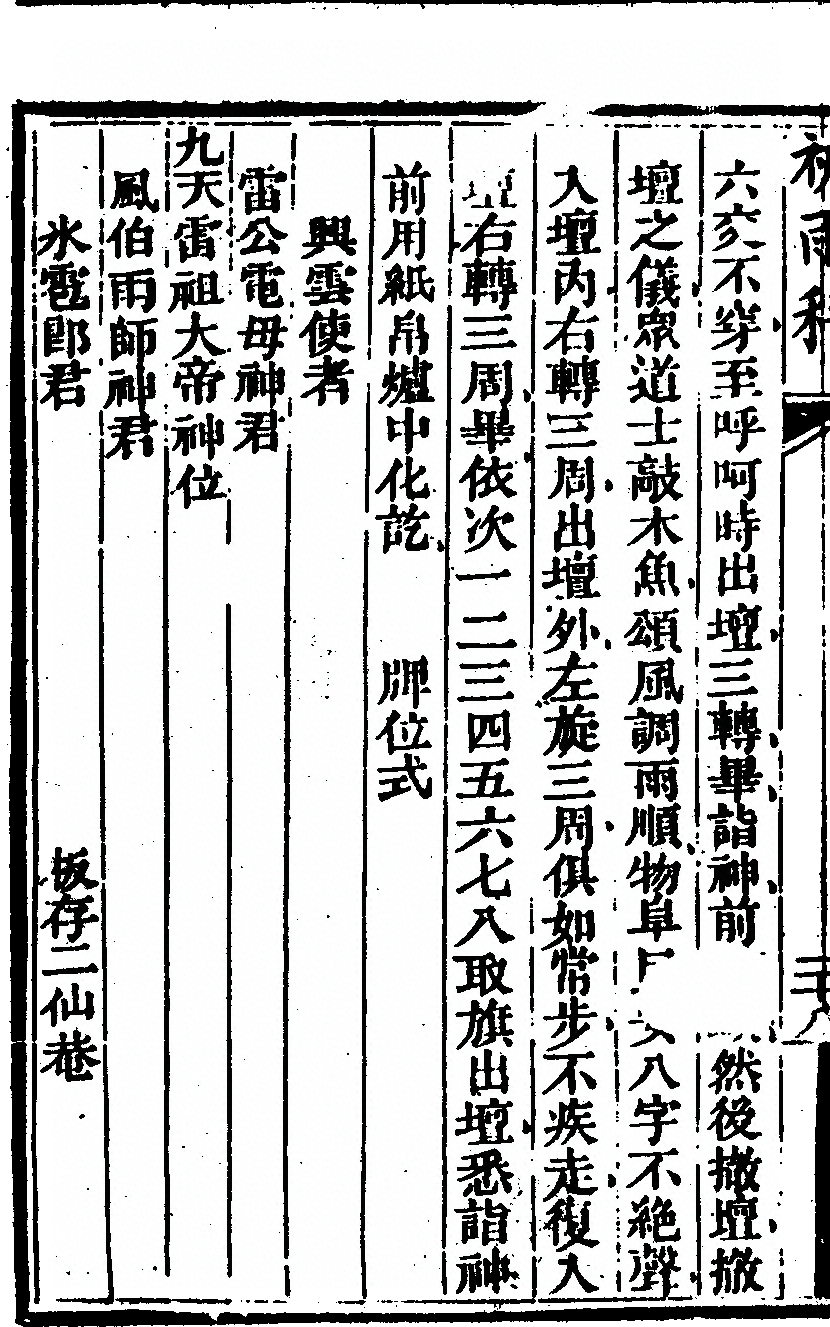 祈雨科
三十八
六交不穿至呼呵時出壇三轉畢詣神前然後撤壇撤
壇之儀眾道士敲木魚頌風調雨順物阜民安八字不絶聲
入壇內右轉三周出壇外左旋三周俱如常步不疾走復入
壇右轉三周畢依次一二三四五六七八取旗出壇悉詣神
前用紙帛爐中化訖　牌位式
興雲使者
雷公電母神君
九天雷祖大帝神位
風伯雨師神君
氷雹郎君　板存二仙巷